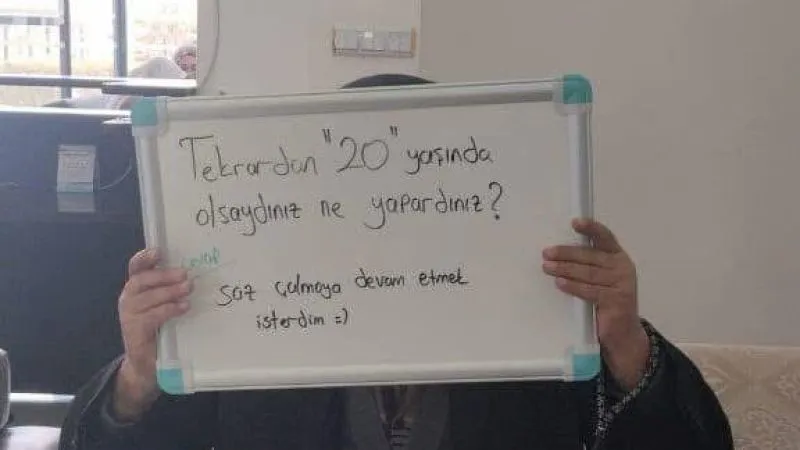 Tekrardan "20" yaşında
olsaydınız ne yapardınız?
cevap
saz çalmaya devam etmek
isterdim =)